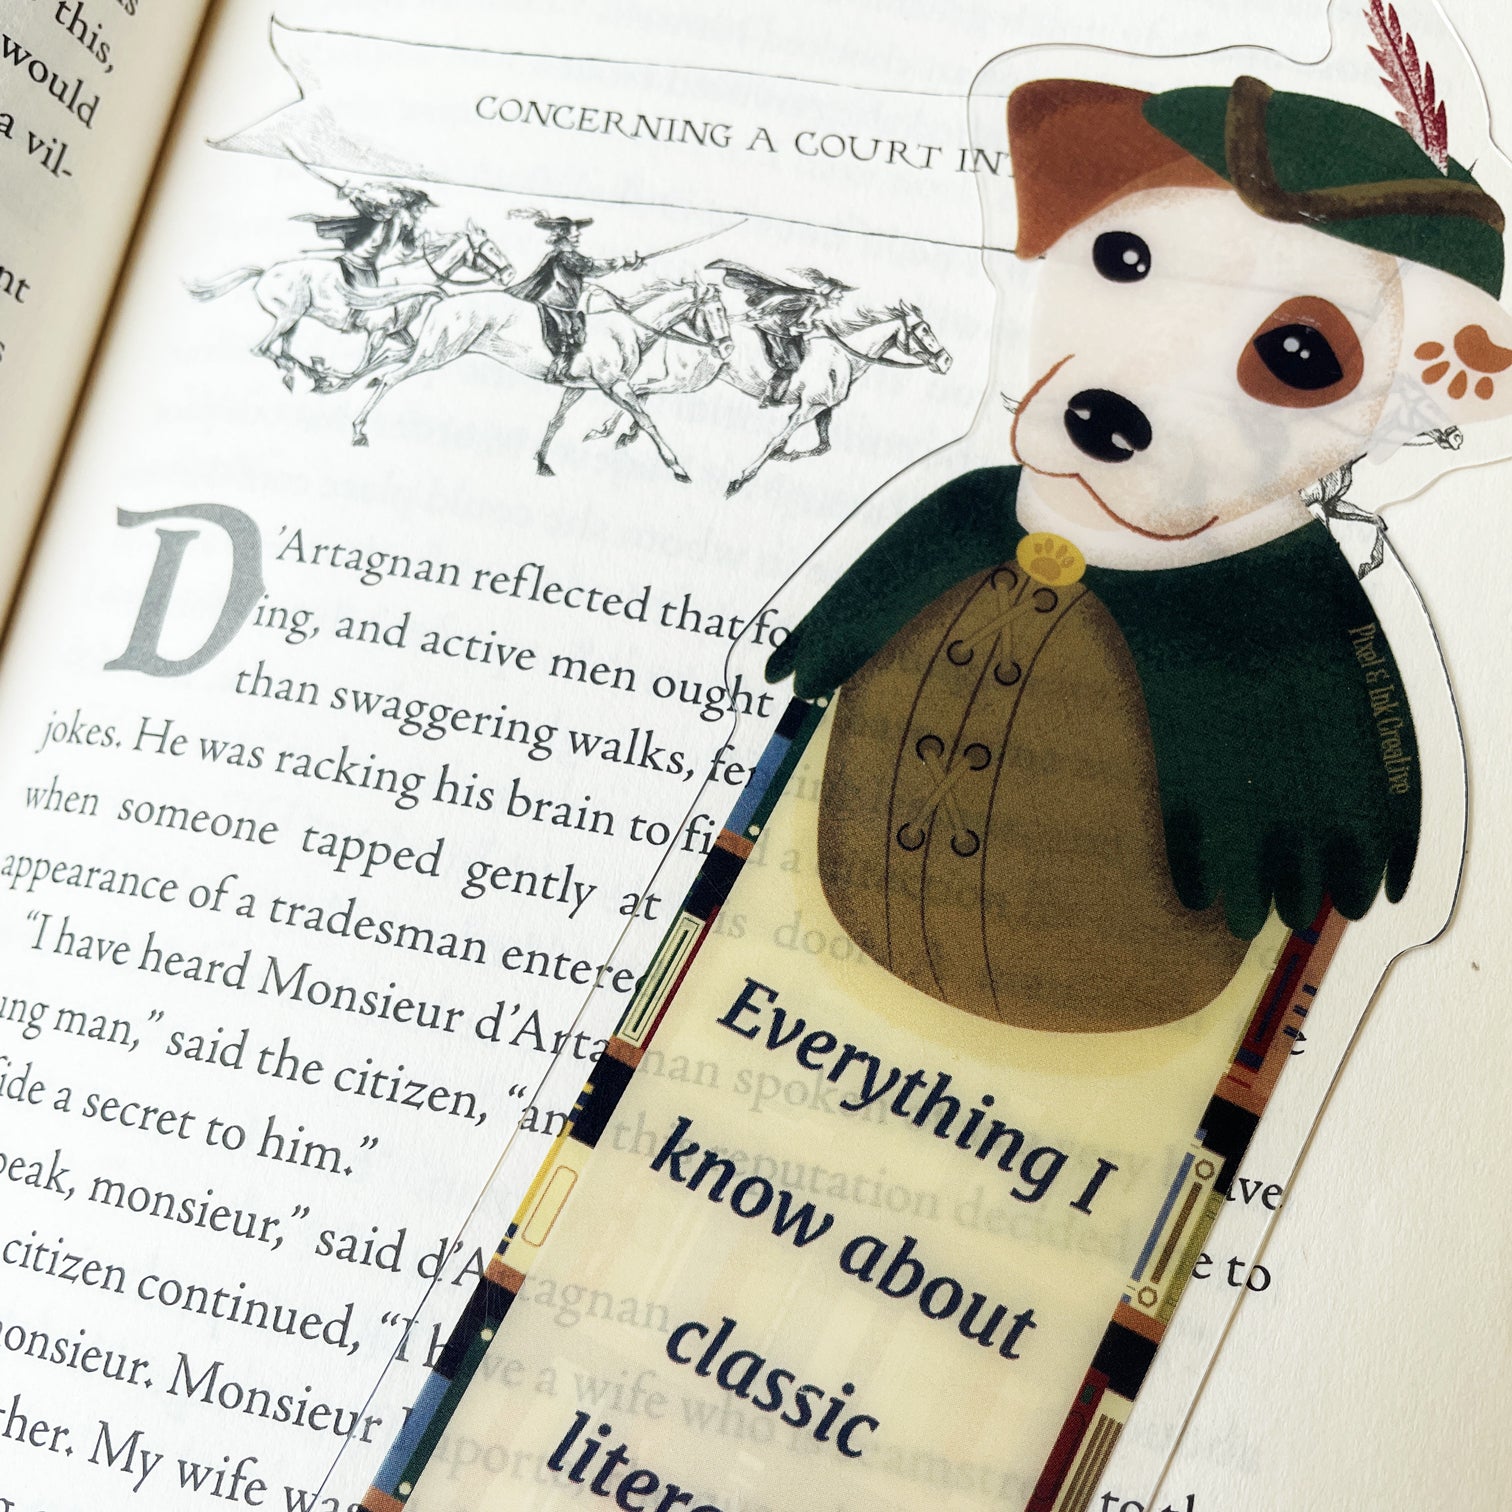 this,
would
a vil-
nt
s
CONCERNING A COURT INT
D'Artagnan reflected that fo
ing, and active men ought
than swaggering walks, fen
jokes. He was racking his brain to fi d a
when someone tapped gently at is door
appearance of a tradesman entered
“I have heard Monsieur d’Artagnan spoken
ung man,” said the citizen, “and this reputation decided e to
ide a secret to him.”
peak, monsieur,” said d’Artagnan
citizen continued, “I have a wife who
onsieur. Monsieur
her. My wife was
e
ave
to th
Pixel & Ink Creative
Everything I
know about
classic
litera